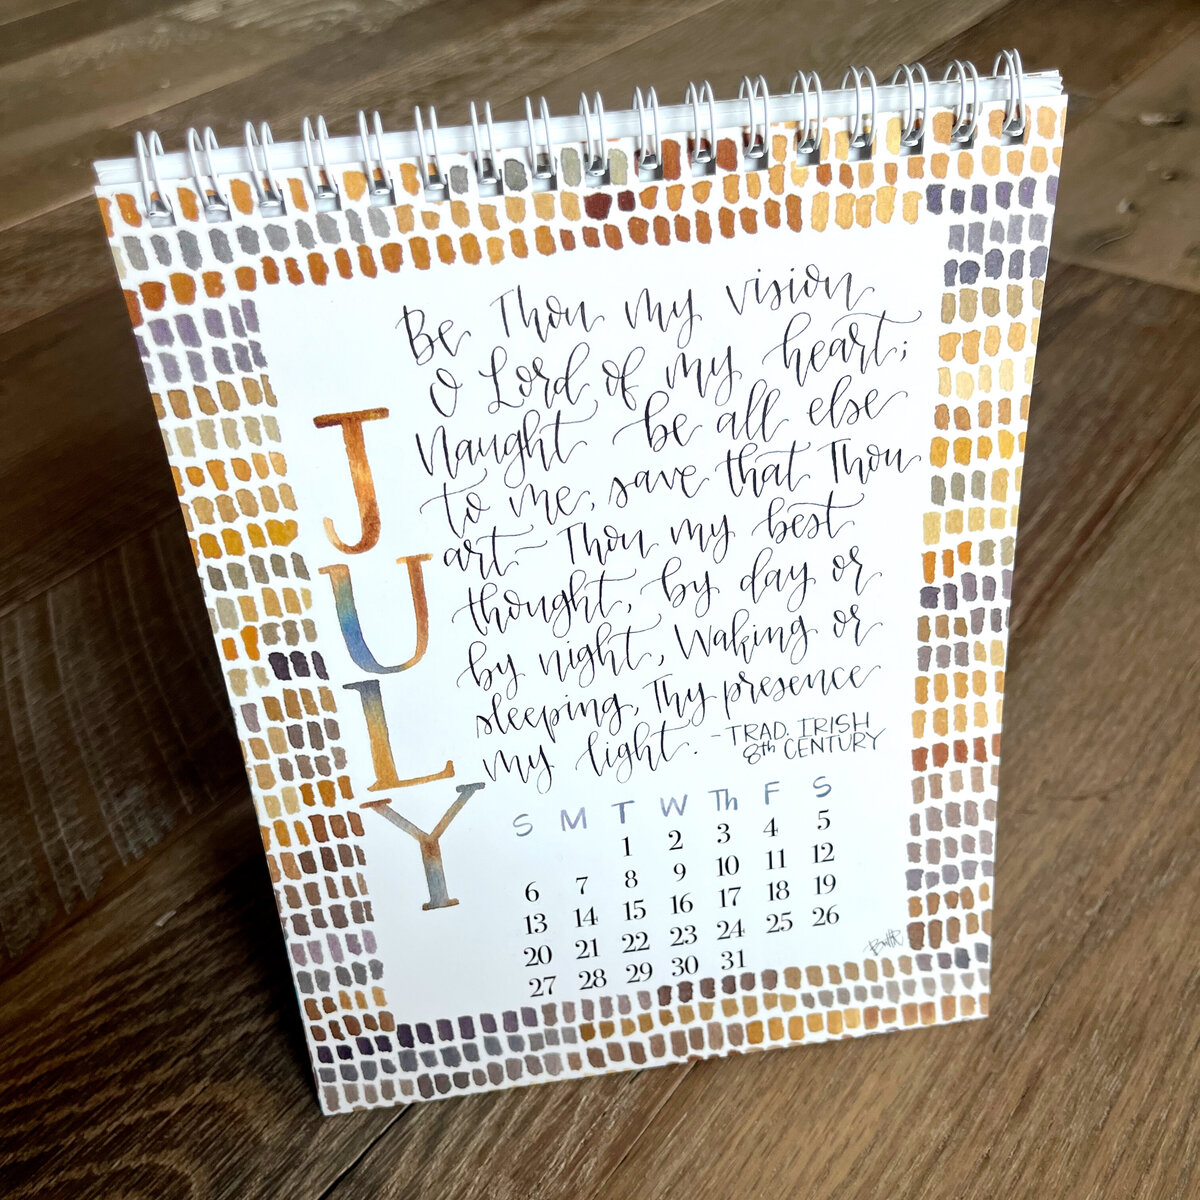 JULY
Be Thou my vision
O Lord of my heart;
Naught be all else
to me, save that Thou
art - Thou my best
thought, by day or
by night, Waking or
sleeping, Thy presence
my light. - TRAD. IRISH
8th CENTURY
S M T W Th F S
1 2 3 4 5
6 7 8 9 10 11 12
13 14 15 16 17 18 19
20 21 22 23 24 25 26
27 28 29 30 31